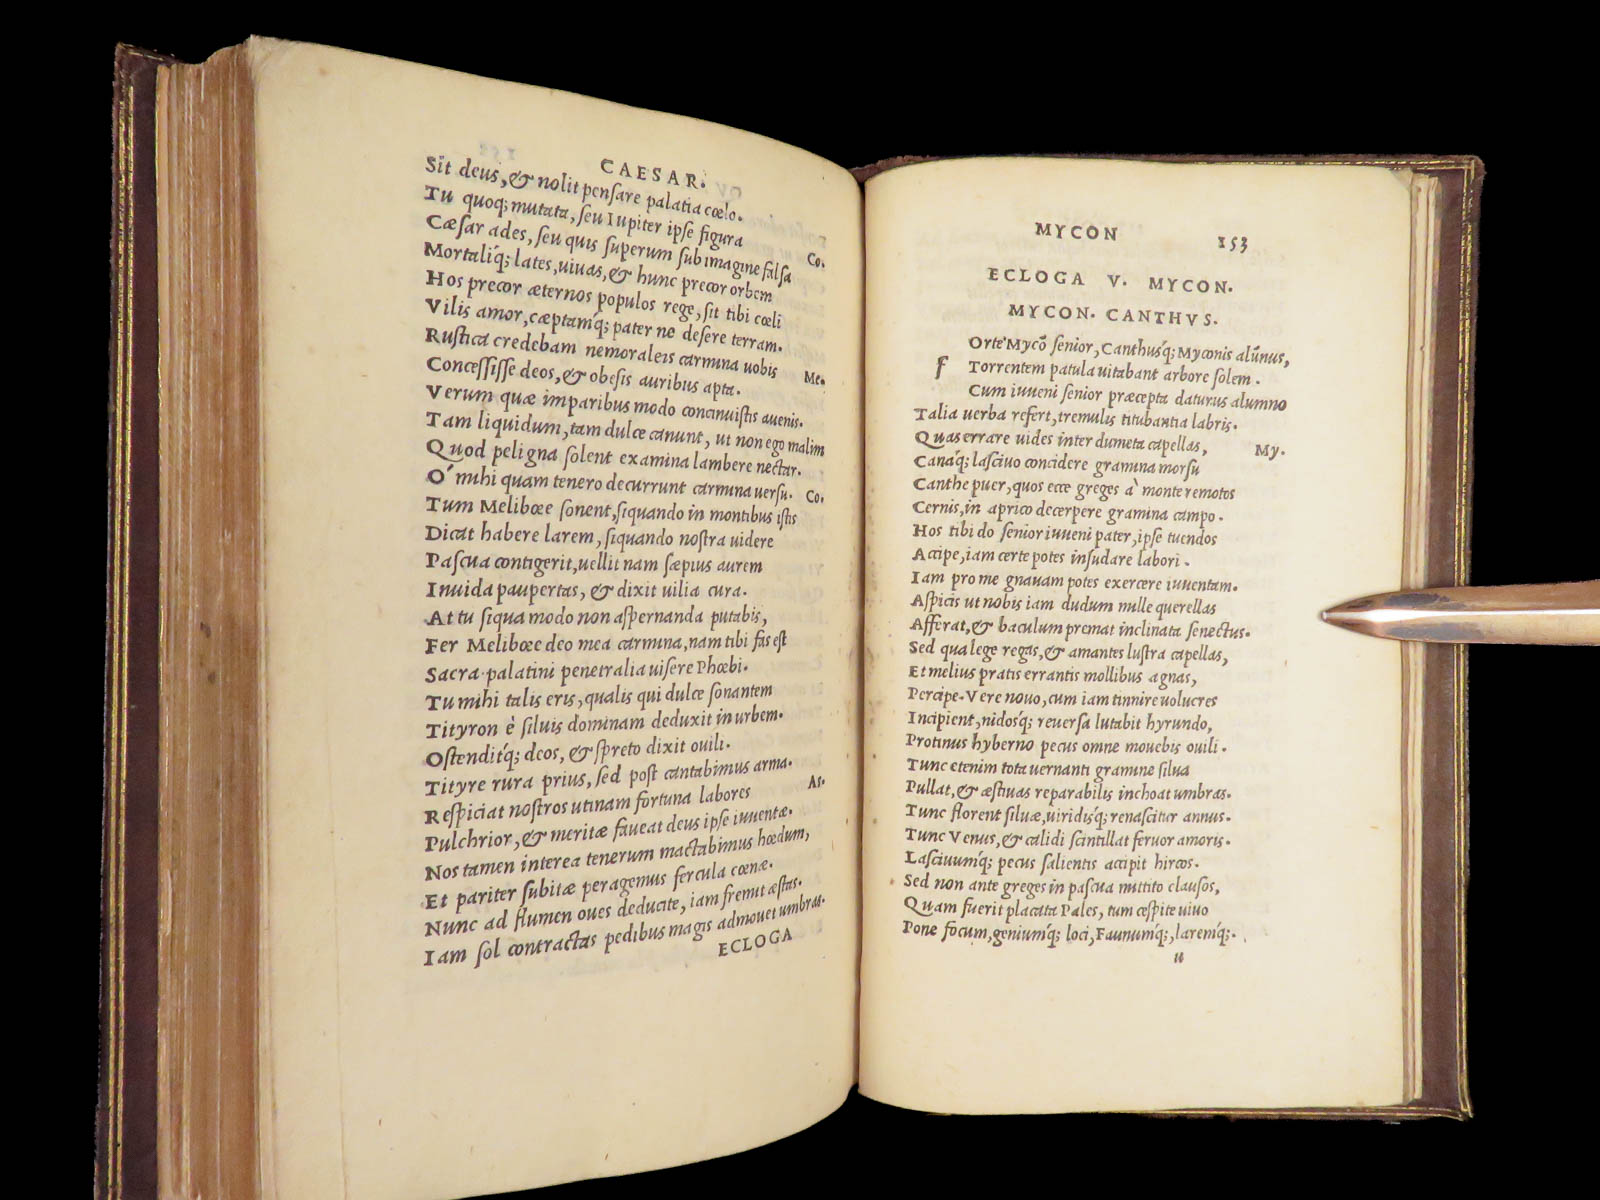 CAESAR.
Sit deus, & nolit pensare palatia cœlo.
Tu quoq; mutata, seu Iupiter ipse figura
Cæsar ades, seu quis superum sub imagine falsa Co.
Mortaliq́; lates, uiuas, & hunc precor orbem
Hos precor æternos populos rege, sit tibi cœli
Vilis amor, cæptamq́; pater ne desere terram.
Rustica credebam nemoraleis carmina uobis Me.
Concessisse deos, & obesis auribus apta.
Verum quæ imparibus modo concinuistis auenis.
Tam liquidum, tam dulce canunt, ut non ego malim
Quod peligna solent examina lambere nectar.
O' mihi quam tenero decurrunt carmina uersu. Co.
Tum Melibœe sonent, siquando in montibus istis
Dicat habere larem, siquando nostra uidere
Pascua contigerit, uellit nam sæpius aurem
Inuida paupertas, & dixit uilia cura.
At tu siqua modo non aspernanda putabis,
Fer Melibœe deo mea carmina, nam tibi fas est
Sacra palatini penetralia uisere Phœbi.
Tu mihi talis eris, qualis qui dulce sonantem
Tityron è siluis dominam deduxit in urbem.
Ostenditq́; deos, & spreto dixit ouili.
Tityre rura prius, sed post cantabimus arma.
Respiciat nostros utinam fortuna labores As.
Pulchrior, & meritæ faueat deus ipse iuuentæ.
Nos tamen interea tenerum mactabimus hœdum,
Et pariter subitæ peragemus fercula cœnæ.
Nunc ad flumen oues deducite, iam fremit æstas.
Iam sol contractas pedibus magis admouet umbras.
ECLOGA
MYCON 153
ECLOGA V. MYCON.
MYCON. CANTHVS.
f Orte Mycō senior, Canthusq́; Myconis alūnus,
Torrentem patula uitabant arbore solem.
Cum iuueni senior præcepta daturus alumno
Talia uerba refert, tremulis titubantia labris.
Quas errare uides inter dumeta capellas, My.
Canaq́; lasciuo concidere gramina morsu
Canthe puer, quos ecce greges à monte remotos
Cernis, in aprico decerpere gramina campo.
Hos tibi do senior iuueni pater, ipse tuendos
Accipe, iam certe potes insudare labori.
Iam pro me gnauam potes exercere iuuentam.
Aspicis ut nobis iam dudum mille querellas
Afferat, & baculum premat inclinata senectus.
Sed qua lege regas, & amantes lustra capellas,
Et melius pratis errantis mollibus agnas,
Percipe. Vere nouo, cum iam tinnire uolucres
Incipient, nidosq́; reuersa lutabit hyrundo,
Protinus hyberno pecus omne mouebis ouili.
Tunc etenim tota uernanti gramine silua
Pullat, & æstiuas reparabilis inchoat umbras.
Tunc florent siluæ, uiridisq́; renascitur annus.
Tunc Venus, & calidi scintillat feruor amoris.
Lasciuumq́; pecus salientis accipit hircos.
Sed non ante greges in pascua mittito clausos,
Quam fuerit placata Pales, tum cespite uiuo
Pone focum, geniumq́; loci, Faunumq́;, laremq́;.
u